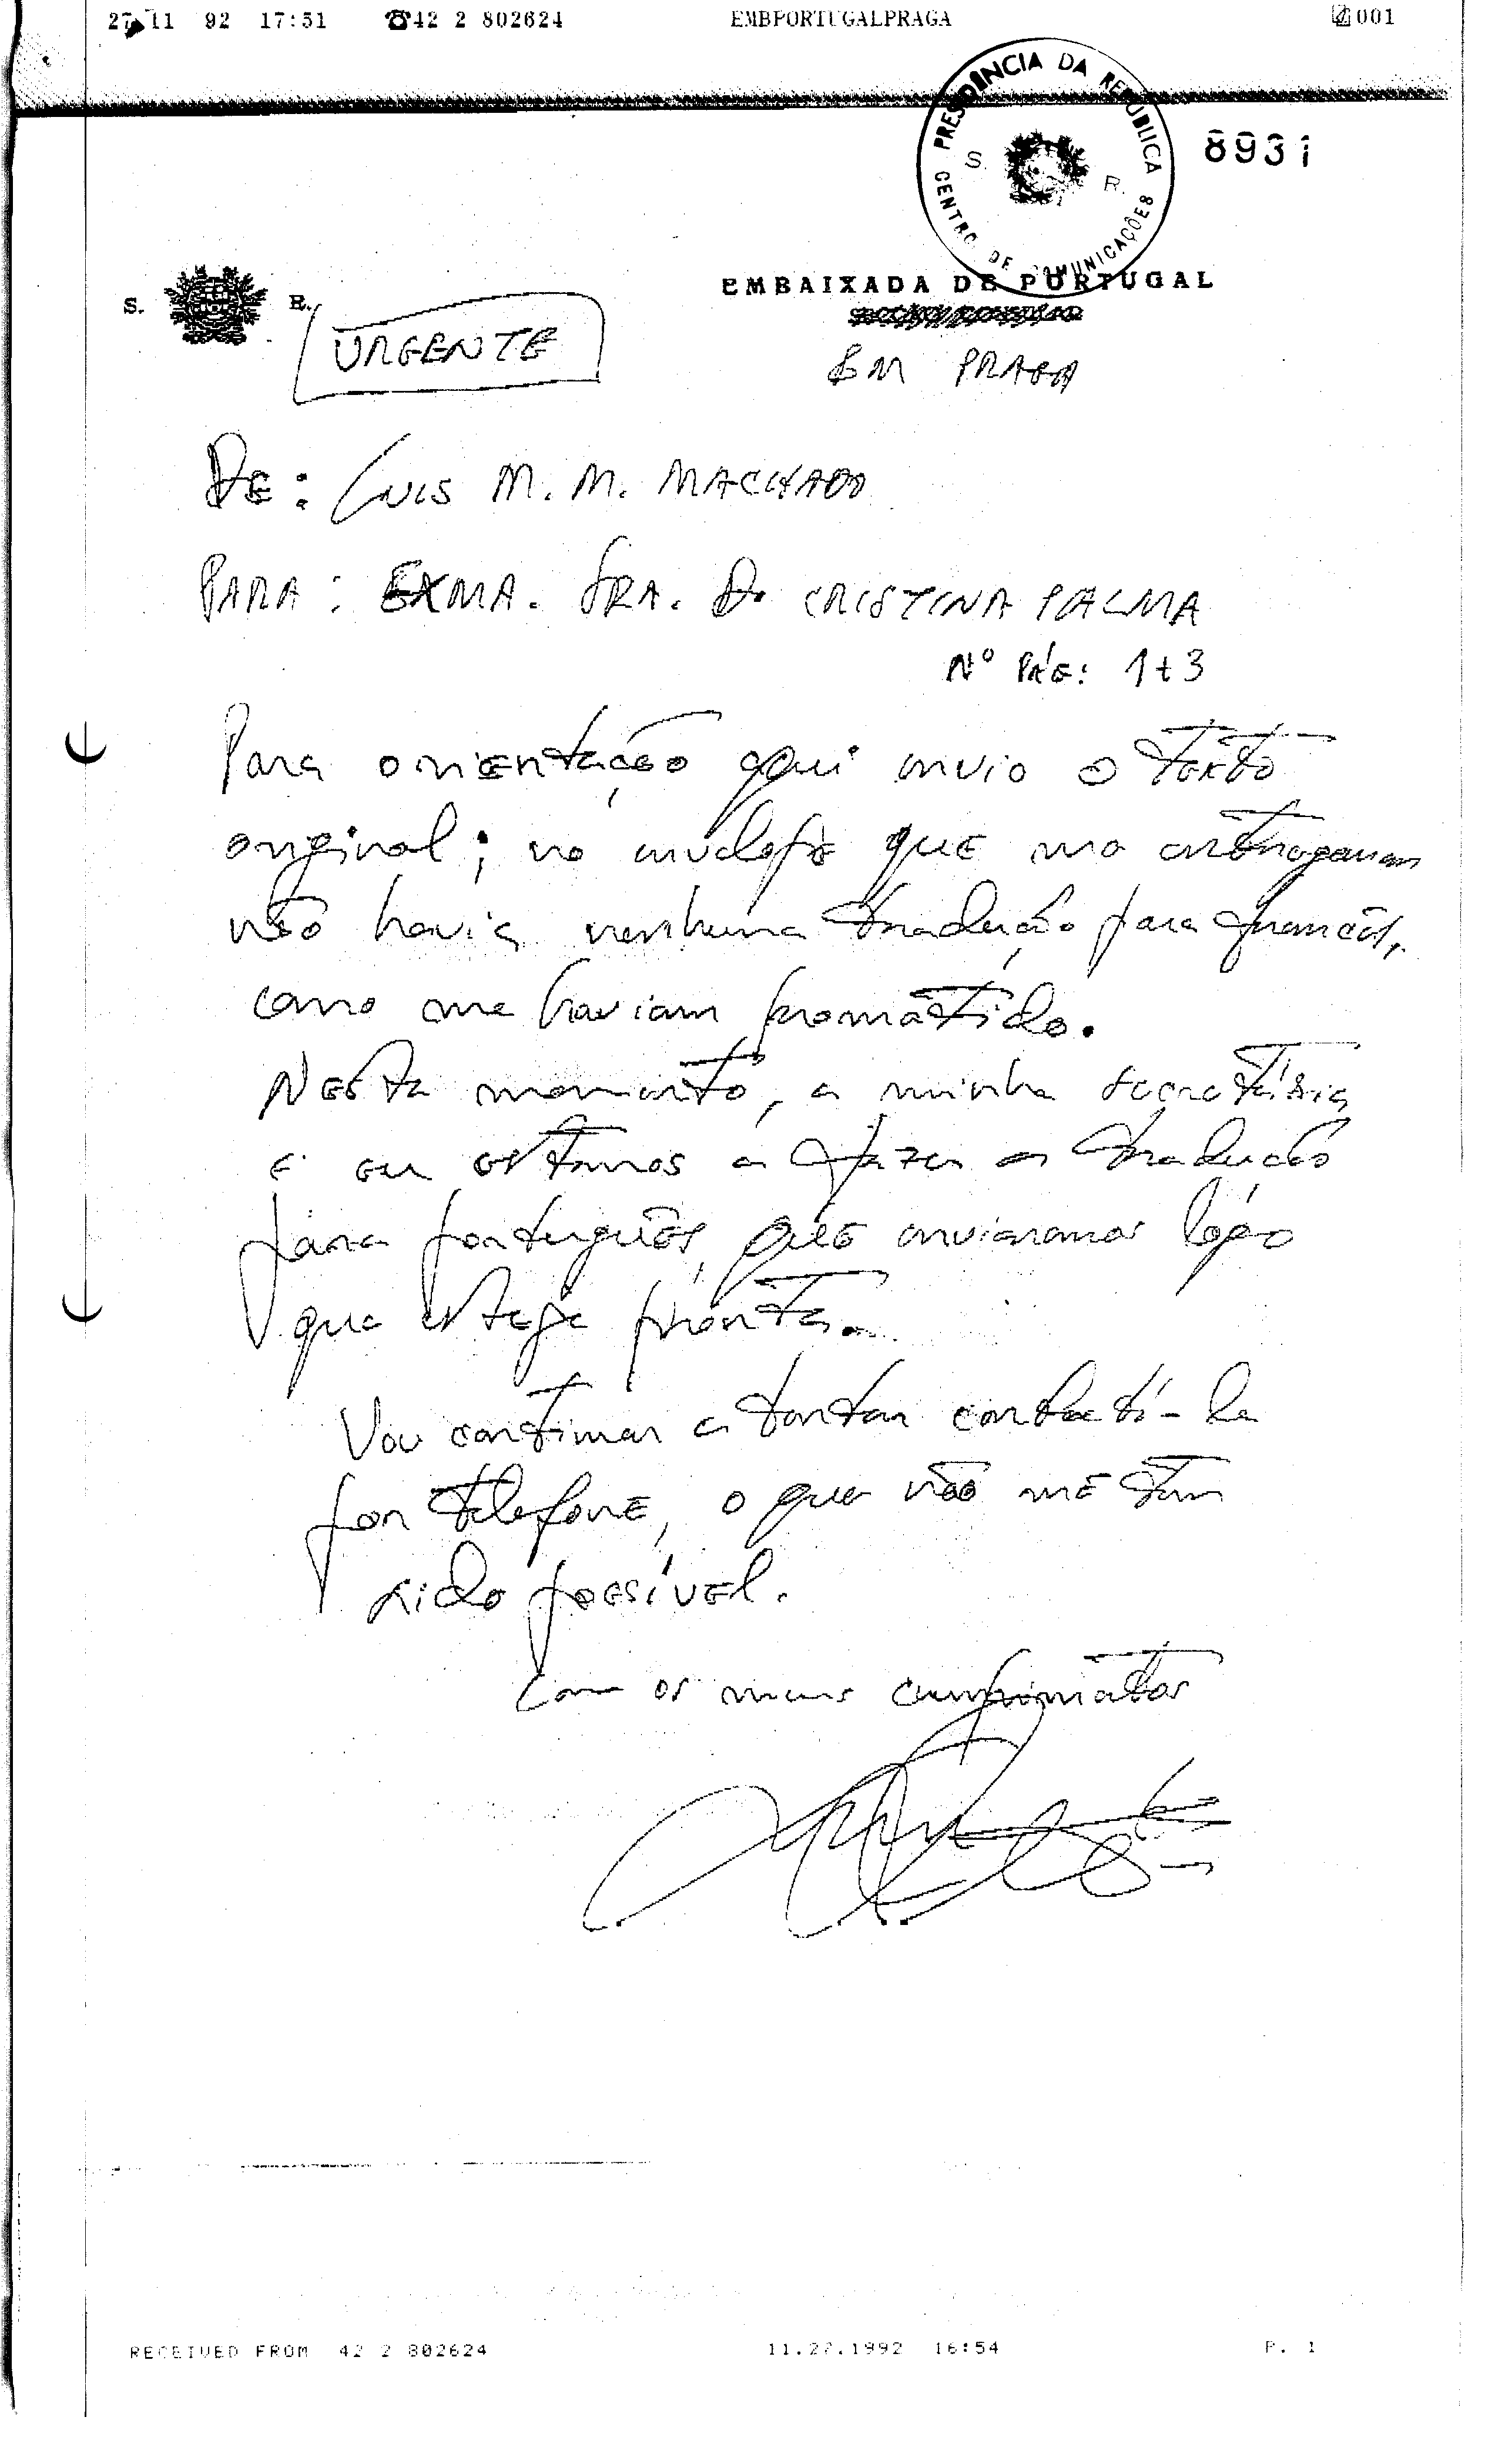 27 11 92 17:51 ☎42 2 802624 EMBPORTUGALPRAGA 001
PRESIDÊNCIA DA REPÚBLICA
S. R.
CENTRO DE COMUNICAÇÕES
8931
S. R.
EMBAIXADA DE PORTUGAL
SECÇÃO CONSULAR
EM PRAGA
URGENTE
DE: LUIS M. M. MACHADO
PARA: EXMA. SRA. D. CRISTINA PALMA
Nº PÁG: 1+3
Para orientação aqui envio o texto
original; no envelope que me entregaram
não havia nenhuma tradução para francês,
como me haviam prometido.
Neste momento, a minha secretária
e eu estamos a fazer a tradução
para português, que enviaremos logo
que esteja pronta.
Vou continuar a tentar contactá-la
por telefone, o que não me tem
sido possível.
Com os meus cumprimentos
RECEIVED FROM 42 2 802624 11.27.1992 16:54 P. 1